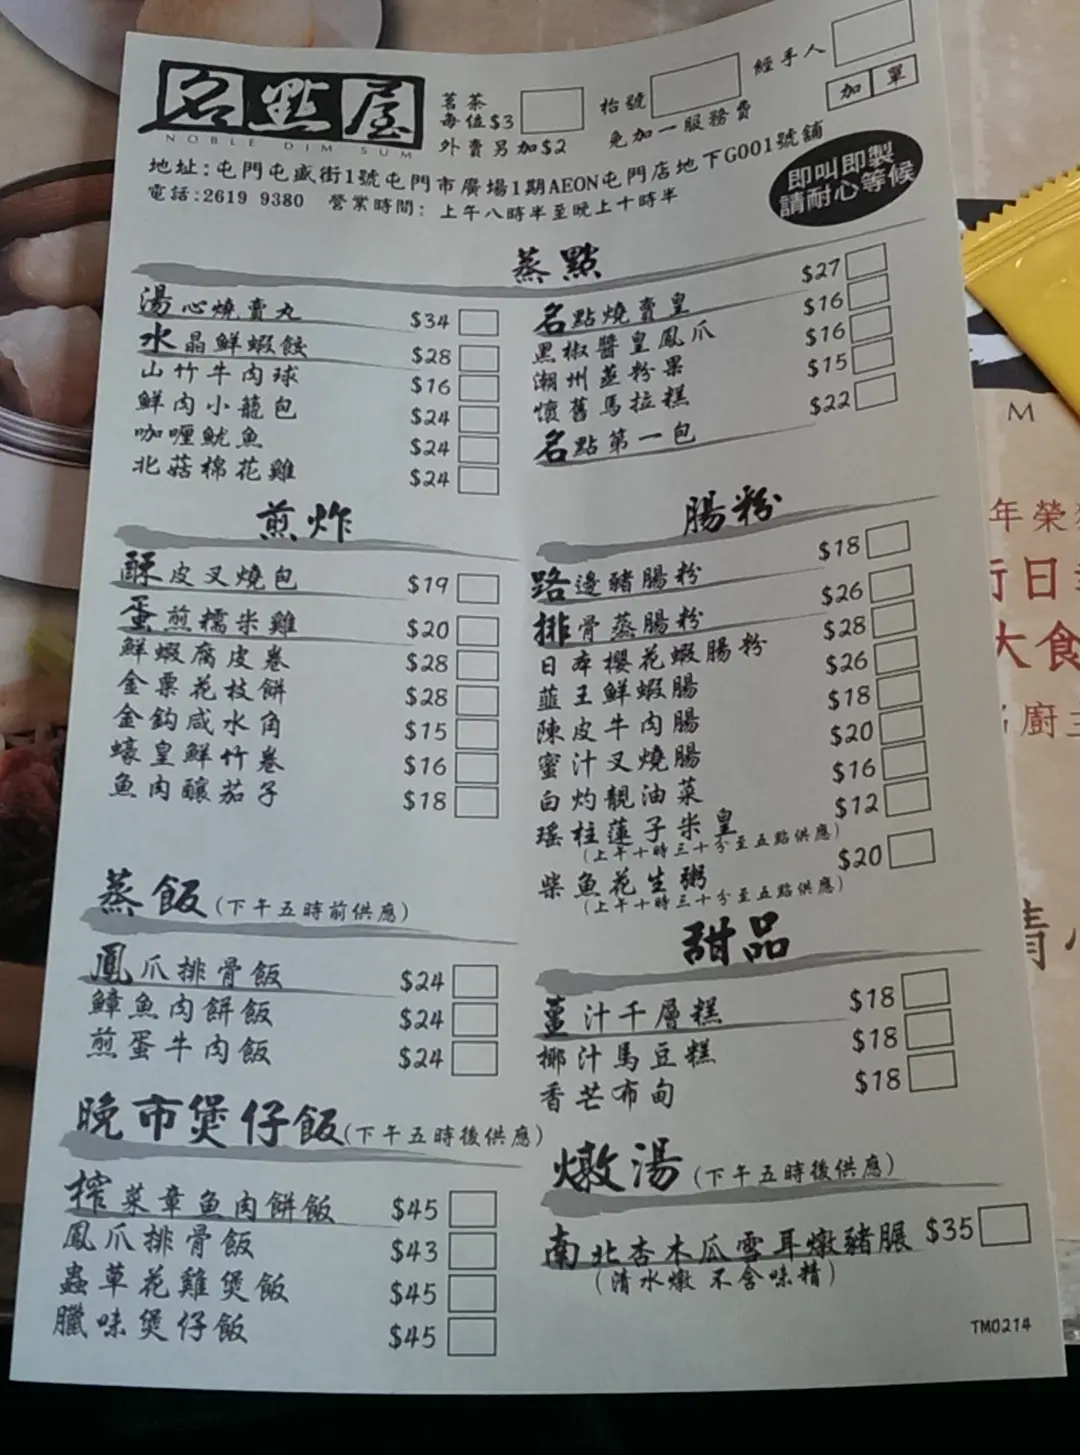 名點屋
NOBLE DIM SUM
茗茶
每位$3
外賣另加$2
枱號
免加一服務費
經手人
加單
地址:屯門屯盛街1號屯門市廣場1期AEON屯門店地下G001號舖
電話:2619 9380 營業時間: 上午八時半至晚上十時半
即叫即製
請耐心等候
蒸點
湯心燒賣丸 $34
水晶鮮蝦餃 $28
山竹牛肉球 $16
鮮肉小籠包 $24
咖喱魷魚 $24
北菇棉花雞 $24
名點燒賣皇 $27
黑椒醬皇鳳爪 $16
潮州蒸粉果 $16
懷舊馬拉糕 $15
名點第一包 $22
煎炸
酥皮叉燒包 $19
蛋煎糯米雞 $20
鮮蝦腐皮卷 $28
金粟花枝餅 $28
金鈎咸水角 $15
蠔皇鮮竹卷 $16
魚肉釀茄子 $18
腸粉
路邊豬腸粉 $18
排骨蒸腸粉 $26
日本櫻花蝦腸粉 $28
韮王鮮蝦腸 $26
陳皮牛肉腸 $18
蜜汁叉燒腸 $20
白灼靚油菜 $16
瑤柱蓮子米皇 $12
(上午十時三十分至五點供應)
柴魚花生粥 $20
(上午十時三十分至五點供應)
蒸飯(下午五時前供應)
鳳爪排骨飯 $24
鱆魚肉餅飯 $24
煎蛋牛肉飯 $24
甜品
薑汁千層糕 $18
椰汁馬豆糕 $18
香芒布甸 $18
晚市煲仔飯(下午五時後供應)
榨菜章魚肉餅飯 $45
鳳爪排骨飯 $43
蟲草花雞煲飯 $45
臘味煲仔飯 $45
燉湯(下午五時後供應)
南北杏木瓜雪耳燉豬𦟌 $35
(清水燉 不含味精)
TM0214
M
年榮
行日
大食
廚